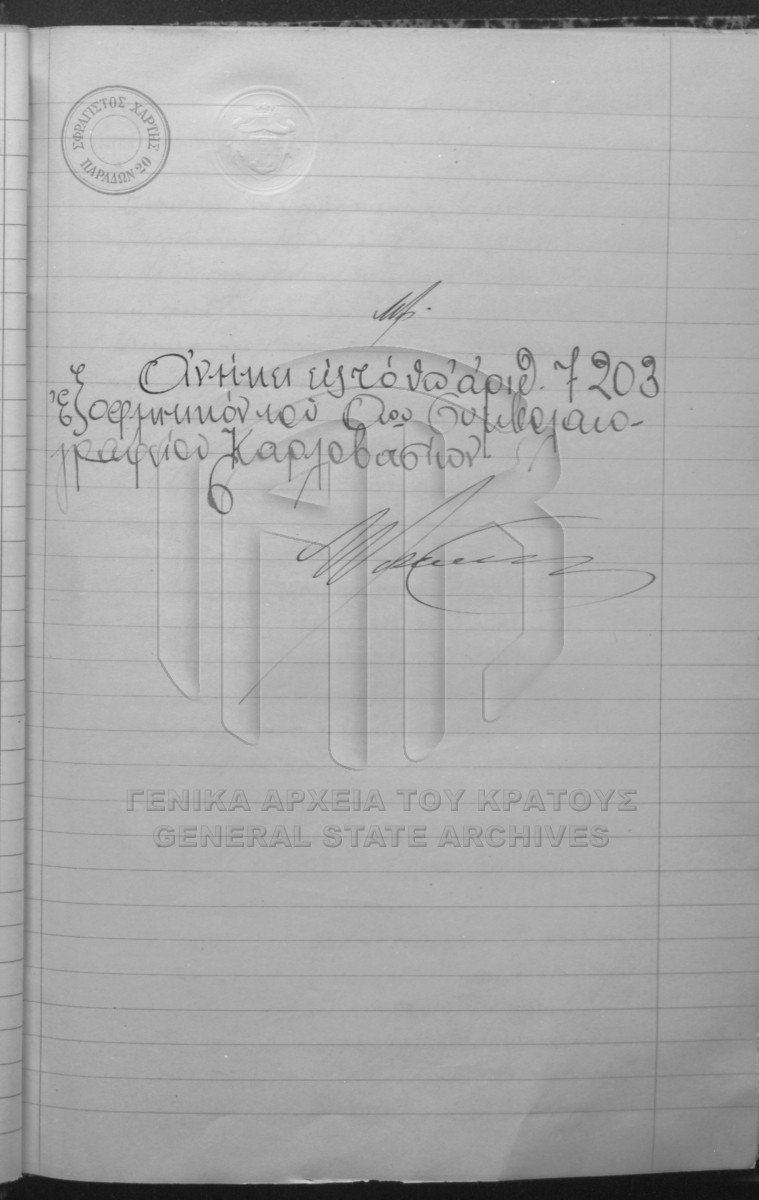 ΣΦΡΑΓΙΣΤΟΣ ΧΑΡΤΗΣ
ΠΑΡΑΔΩΝ·20
Ἀνήκει εἰς τὸ ὑπ' ἀριθ. 7203
ἐξοφλητικόν τοῦ Συμβολαιο-
γραφείου Καρλοβασίων
ΓΕΝΙΚΑ ΑΡΧΕΙΑ ΤΟΥ ΚΡΑΤΟΥΣ
GENERAL STATE ARCHIVES